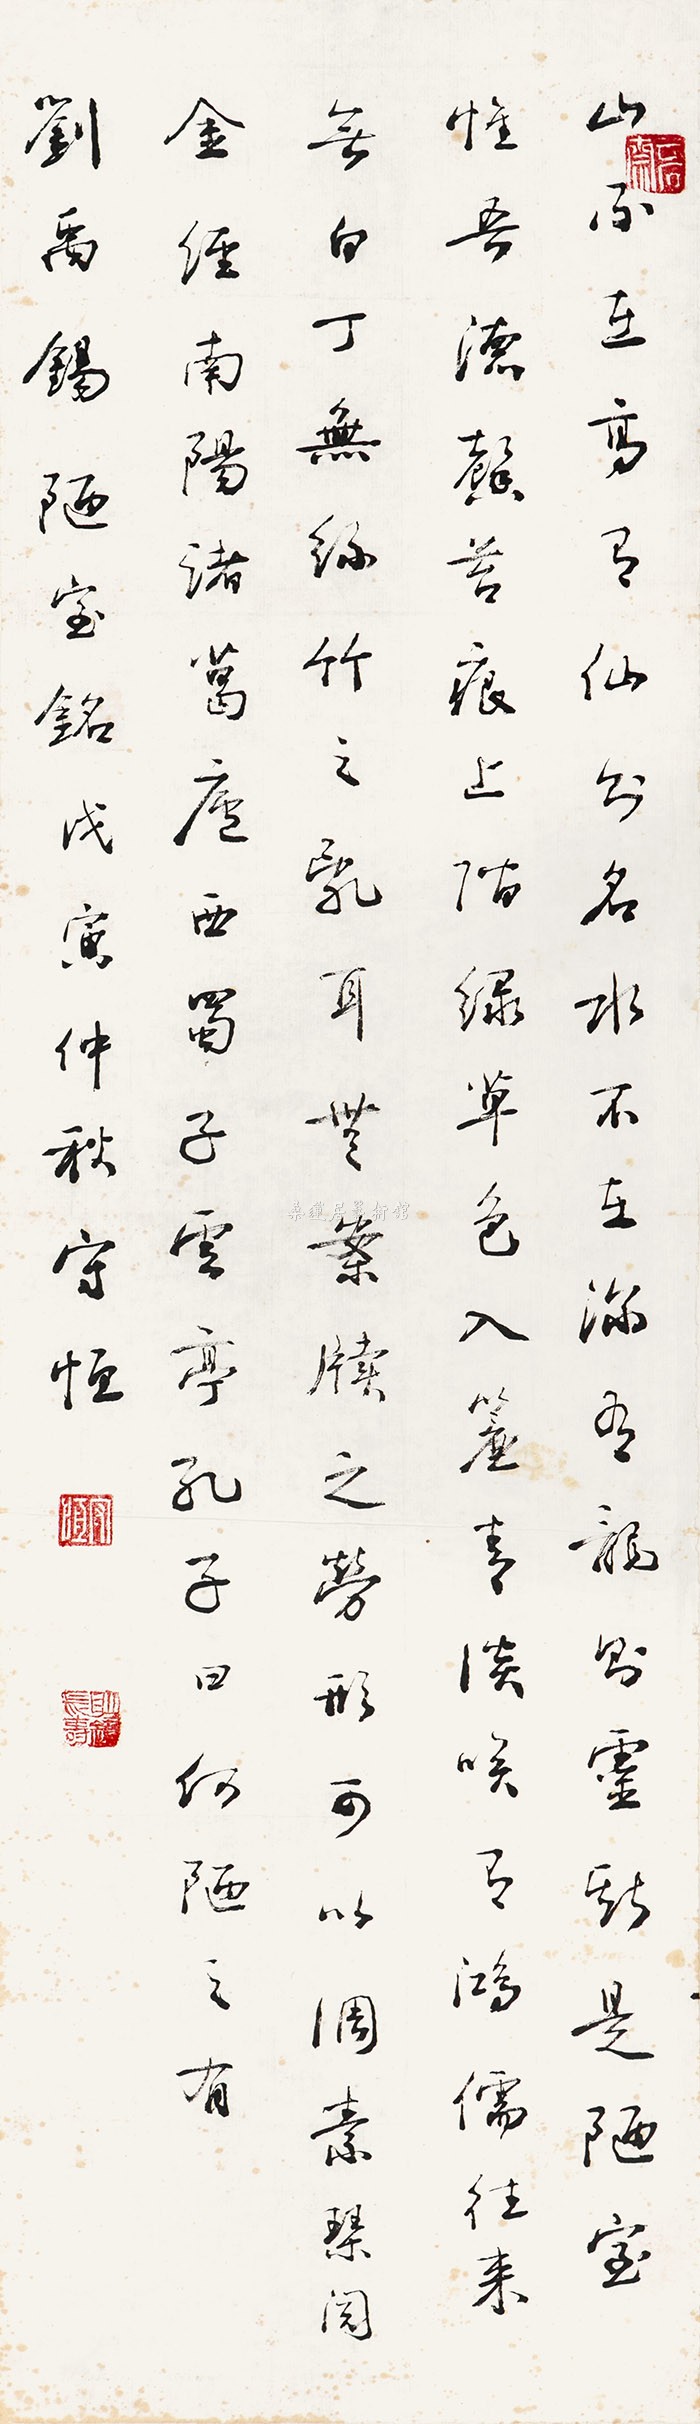 山不在高有仙則名水不在深有龍則靈斯是陋室
惟吾德馨苔痕上階綠草色入簾青談笑有鴻儒往來
無白丁無絲竹之亂耳無案牘之勞形可以調素琴閱
金經南陽諸葛廬西蜀子雲亭孔子曰何陋之有
劉禹錫陋室銘戊寅仲秋守恒
守恒